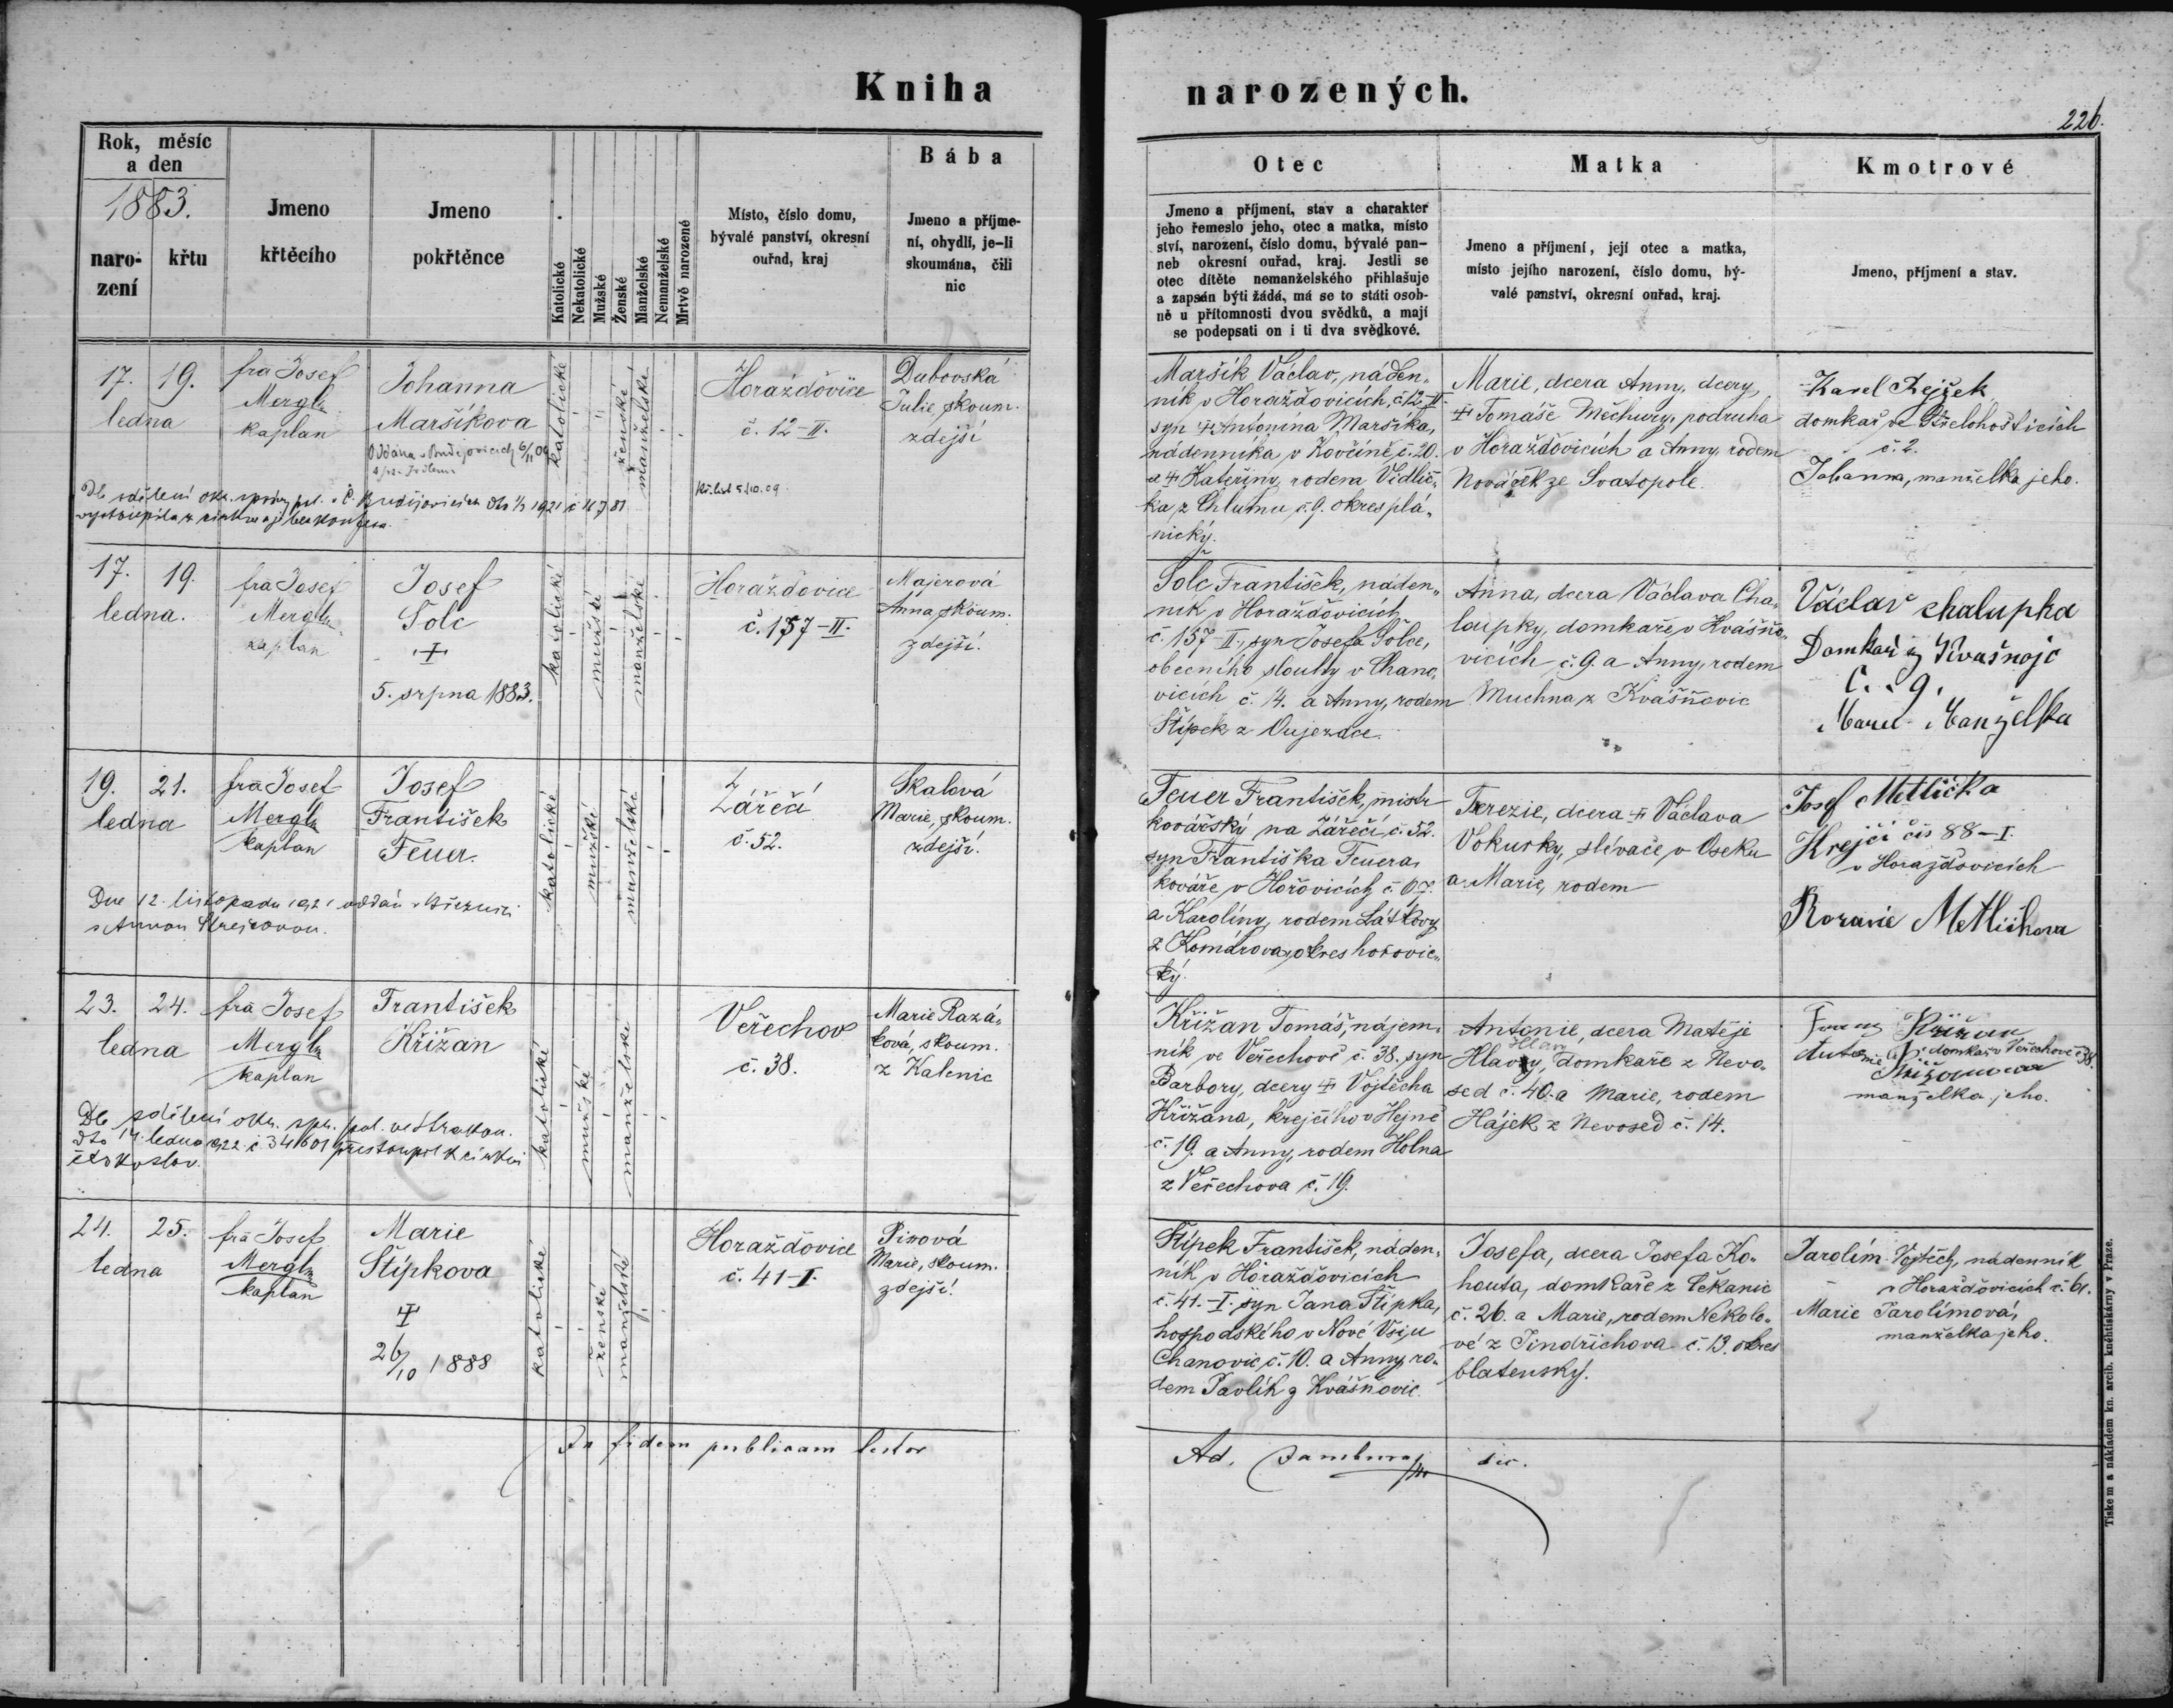 Kniha narozených.
226.
Rok, měsíc
a den
1883.
naro-
zení
křtu
Jmeno
křtěcího
Jmeno
pokřtěnce
Katolické
Nekatolické
Mužské
Ženské
Manželské
Nemanželské
Mrtvě narozené
Místo, číslo domu,
bývalé panství, okresní
ouřad, kraj
Bába
Jmeno a příjme-
ní, obydlí, je-li
skoumána, čili
nic
Otec
Jmeno a příjmení, stav a charakter
jeho řemeslo jeho, otec a matka, místo
ství, narození, číslo domu, bývalé pan-
neb okresní ouřad, kraj. Jestli se
otec dítěte nemanželského přihlašuje
a zapsán býti žádá, má se to státi osob-
ně u přítomnosti dvou svědků, a mají
se podepsati on i ti dva svědkové.
Matka
Jmeno a příjmení, její otec a matka,
místo jejího narození, číslo domu, bý-
valé panství, okresní ouřad, kraj.
Kmotrové
Jmeno, příjmení a stav.
17. 19.
ledna
fra Josef
Mergl
kaplan
Johanna
Maršíkova
katolické
ženské
manželské
Horažďovice
č. 12-II.
Dubovská
Julie, skoum.
zdejší
Maršík Václav, náden-
ník v Horažďovicích, č. 12-II.
syn † Antonína Maršíka,
nádenníka v Kovčíně č. 20.
a † Kateřiny, rodem Vidlič-
ka z Chlumu č. 9. okres plá-
nický.
Marie, dcera Anny, dcery
† Tomáše Měchury, podruha
v Horažďovicích a Anny, rodem
Nováček ze Svatopole.
Karel Rejšek
domkař ve Střelohošticích
č. 2.
Johanna, manželka jeho.
17. 19.
ledna.
fra Josef
Mergl
kaplan
Josef
Šolc
†
5. srpna 1883.
katolické
mužské
manželské
Horažďovice
č. 157-II.
Majerová
Anna, skoum.
zdejší.
Šolc František, náden-
ník v Horažďovicích
č. 157-II., syn Josefa Šolce,
obecního slouhy v Chano-
vicích č. 14. a Anny, rodem
Štípek z Oujezdce.
Anna, dcera Václava Cha-
loupky, domkaře v Kvášňo-
vicích č. 9. a Anny, rodem
Muchna z Kvášňovic
Václav chalupka
č. 9.
Manželka
19. 21.
ledna
fra Josef
Mergl
kaplan
Josef
František
Feuer.
katolické
mužské
manželské
Zářečí
č. 52.
Skalová
Marie, skoum.
zdejší.
Dne 12. listopadu 1921 oddán v Březnici
Feuer František, mistr
kovářský na Zářečí, č. 52.
syn Františka Feuera,
kováře v Hořovicích č. 67.
a Karolíny, rodem Látkovy
z Komárova, okres hořovic-
ký.
Terezie, dcera † Václava
Vokurky, slévače v Oseku
a Marie, rodem
Josef Metlička
Krejčí čís 88-I.
v Horažďovicích
23. 24.
ledna
fra Josef
Mergl
kaplan
František
Křižan
katolické
mužské
manželské
Veřechov
č. 38.
Marie Razá-
ková, skoum.
z Kalenic
Křižan Tomáš, nájem-
ník ve Veřechově č. 38. syn
Barbory, dcery † Vojtěcha
Křižana, krejčího v Hejné
č. 19. a Anny, rodem Holna
z Veřechova č. 19.
Antonie, dcera Matěje
Hlavy, domkaře z Nevo-
sed č. 40. a Marie, rodem
Hájek z Nevosed č. 14.
Křižan
domkař v Veřechově č. 38.
manželka jeho.
24. 25.
ledna
fra Josef
Mergl
kaplan
Marie
Štípkova
†
26/10 1888
katolické
ženské
manželské
Horažďovice
č. 41-I.
Pivová
Marie, skoum.
zdejší.
Štípek František, náden-
ník v Horažďovicích
č. 41.-I. syn Jana Štípka,
hospodského v Nové Vsi u
Chanovic č. 10. a Anny, ro-
dem Pavlík z Kvášňovic.
Josefa, dcera Josefa Ko-
houta, domkaře z Čekanic
č. 26. a Marie, rodem Nekolo-
vé z Jindřichova č. 13. okres
blatenský.
Jarolím Vojtěch, nádenník
v Horažďovicích č. 61.
Marie Jarolímová,
manželka jeho.
In fidem publicam testor
Tiskem a nákladem kn. arcib. kněhtiskárny v Praze.